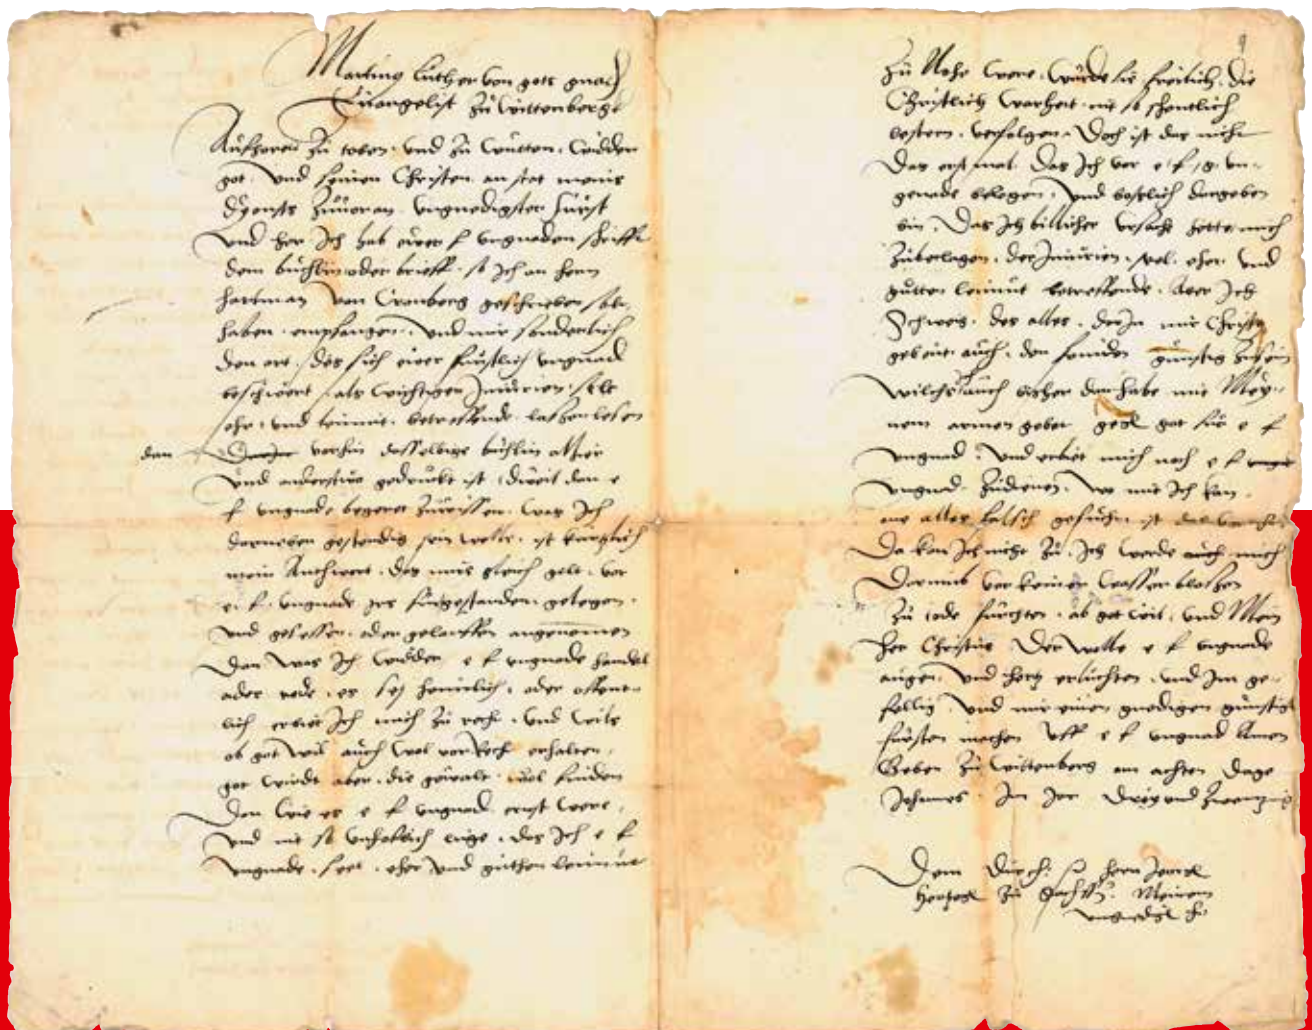 Martinus Luther von gots gnad
Euangelist zu Wittenbergk
Aufhoren zu toben und zu wutten widder
got und seinen Christen an stat meins
dyensts zuuoran ungnedigster furst
und her Ich hab ewer f ungnaden schrifft
dem buchlin oder brieff so Ich an hern
hartman von Cronberg geschrieben soll
haben empfangen und mir sonderlich
den ort des sich ewer furstlich ungnad
beschwert als wichtigen Iniurien sele
ehr und leumut betreffende lassen lesen
dan vorhin dasselbige buchlin alhier
und anderstwo gedruckt ist dweil dan e
f ungnade begeret zuwissen was Ich
darneben gestendig sein wolle ist kurtzlich
mein Anthwort das mirs gleich gelt vor
e f ungnade gestanden gelegen
und gesessen oder gelauffen angenommen
Dan was Ich widder e f ungnade handel
ader rede es sey heimlich oder offent-
lich erbiet Ich mich zu recht und wils
ob got wil auch wol vor Recht erhalten
got wirdt aber die gewalt wol finden
Den wie es e f ungnad ernst were
und nit so unhoflich luge das Ich e f
ungnade seel eher und guthen leumut
zu Nohe were wurde sie freilich die
Christlich warheit nit so schentlich
lestern verfolgen Doch ist das nicht
Das erst mal Das Ich vor e f g un-
genade belogen und boslich dargeben
bin Das Ich billicher ursach hette mich
zubeclagen der Iniurien seel eher und
gutten leumut betreffende Aber Ich
Schweig des alles dan mir Christus
gebeut auch den feinden gunstig zu sein
wilchs auch bisher dan habe mit Mey-
nem armen gebet gegen got fur e f
ungnad und erbiet mich noch e f
ungnad zudienen wo mit Ich kan
one alles falsch gesucht ist
Da kan Ich nicht zu Ich werde auch mich
Darumb vor keiner wasser blasen
zu tode furchten ob got wil und Mein
her Christus Der wolle e f ungnade
augen und hertz erluchten und Im ge-
fellig und mir einen gnedigen gunstigen
fursten machen Uff e f ungnad Amen
Geben zu Wittenberg am achten Dage
Johannes Im Jar Drey und zwentzig
Dem Durch hern Jorge
hertzog zu Sachssen Meinem
ungnedigen h